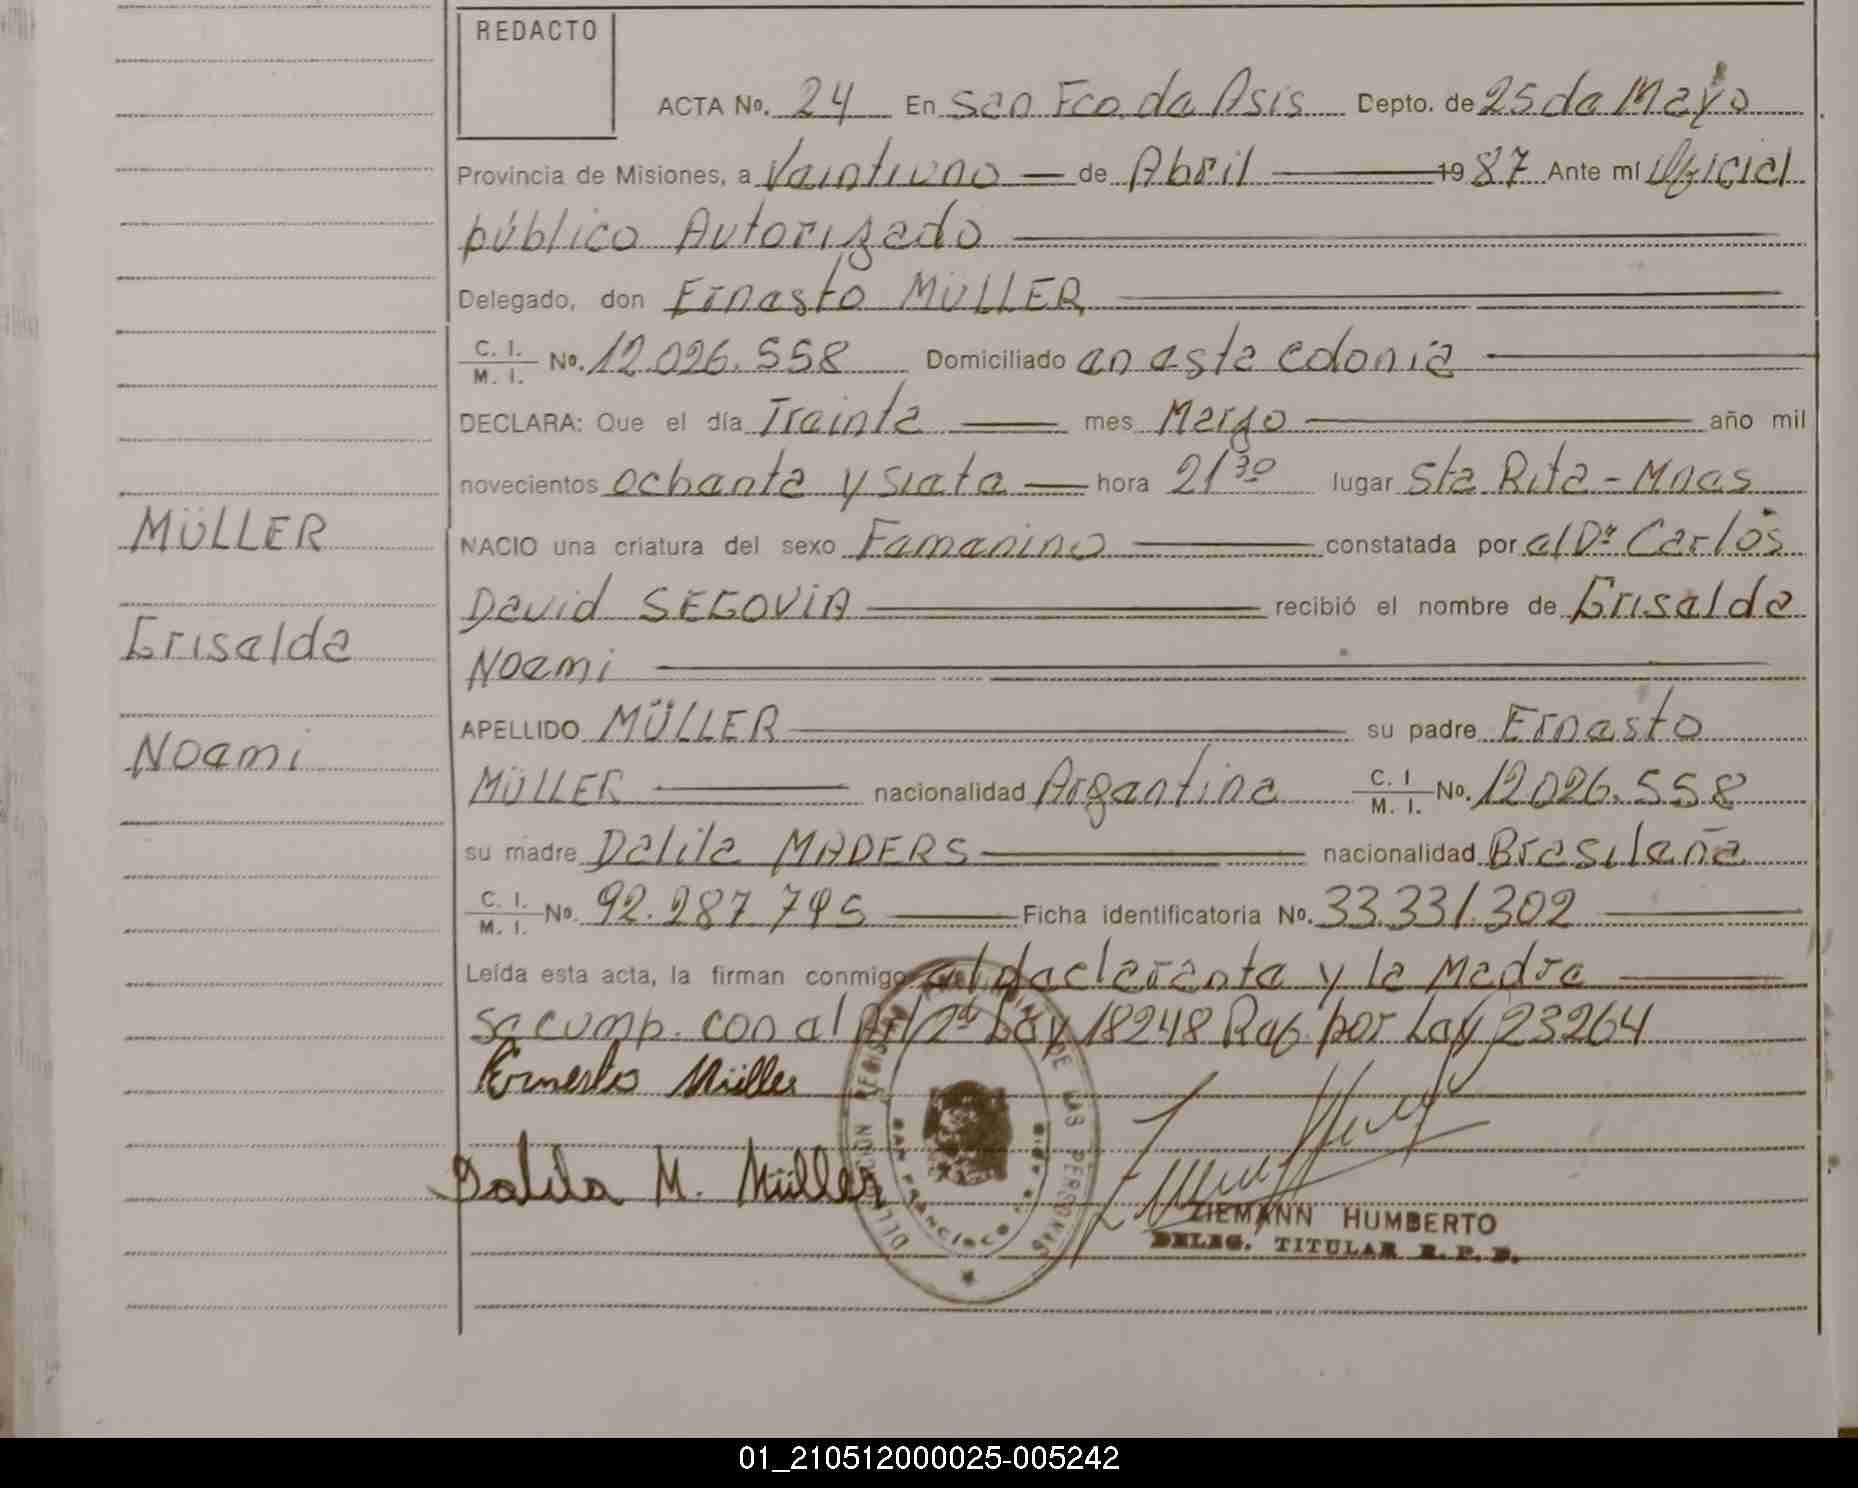 REDACTO
ACTA No. 24 En San Fco. de Asis Depto. de 25 de Mayo
Provincia de Misiones, a Veintiuno de Abril 1987 Ante mí Oficial
público Autorizado
Delegado, don Ernesto MÜLLER
C. I. / M. I. No. 12.026.558 Domiciliado en esta colonia
DECLARA: Que el día Treinta mes Marzo año mil
novecientos ochenta y siete hora 21 30 lugar Sta Rita - Mnes
MÜLLER
NACIO una criatura del sexo Femenino constatada por el Dr Carlos
David SEGOVIA recibió el nombre de Griselda
Griselda
Noemi
APELLIDO MÜLLER su padre Ernesto
Noemi
MÜLLER nacionalidad Argentina C. I / M. I. No. 12026.558
su madre Dalila MADERS nacionalidad Brasileña
C. I. / M. I. No. 92.287 795 Ficha identificatoria No. 33.331.302
Leída esta acta, la firman conmigo el declarante y la Madre
se cump. con el Art 2º Ley 18248 Rag. por Ley 23264
Ernesto Müller
Dalila M. Müller
DE LAS PERSONAS
SAN FRANCISCO
ZIEMANN HUMBERTO
DELEG. TITULAR R. P. P.
01_210512000025-005242